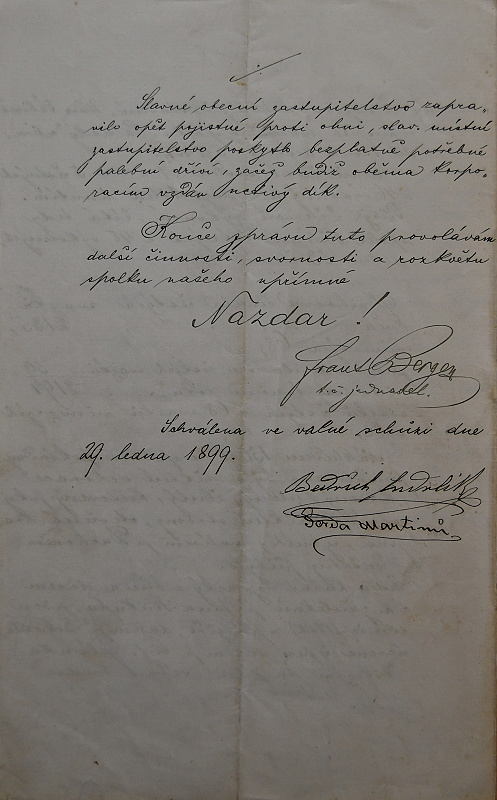 Slavné obecní zastupitelstvo zapra-
vilo opět pojistné proti ohni, slav. místní
zastupitelstvo poskytlo bezplatně potřebné
palební dříví, začež budiž oběma korpo-
racím vzdán uctivý dík.
Konče zprávu tuto provolávám
další činnosti, svornosti a rozkvětu
spolku našeho upřímné
Nazdar!
Frant. Berger
t. č. jednatel.
Schválena ve valné schůzi dne
29. ledna 1899.
Bedřich
Ferda Martinů.